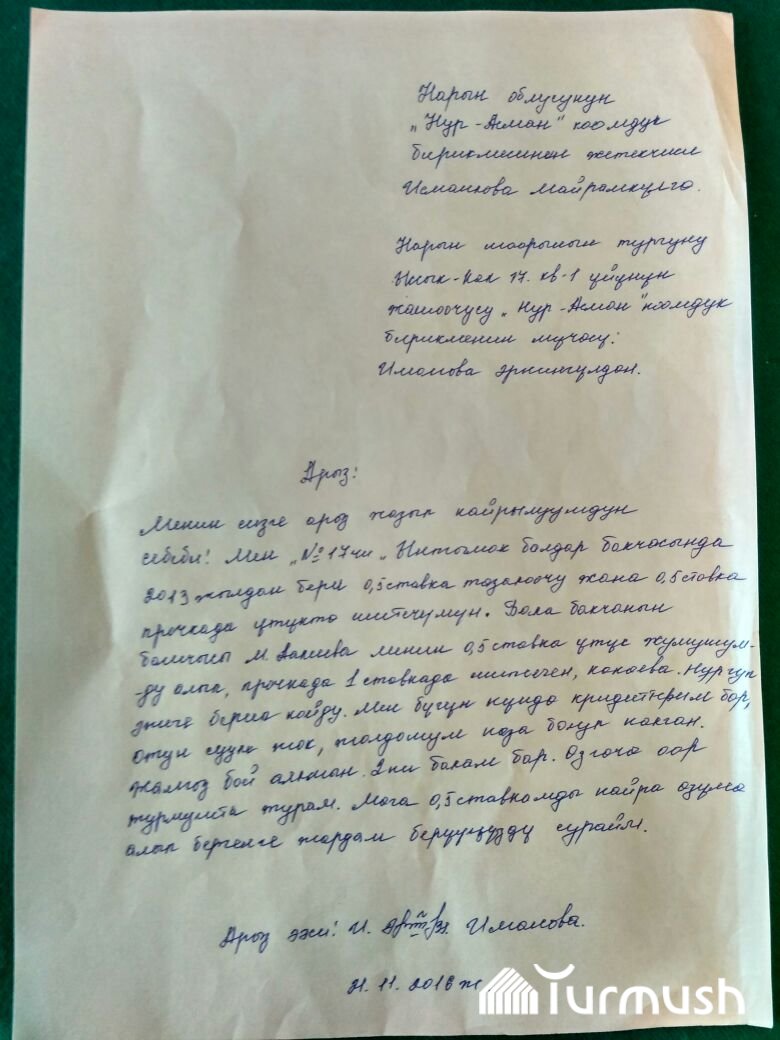 Нарын облусунун
"Нур-Асман" коомдук
бирикмесинен жетекчиси
Исмаилова Майрамкулга.
Нарын шаарынын тургуну
Ысык-Кол 17. кв-1 уйунун
жашоочусу "Нур-Асман" коомдук
бирикменин мучосу:
Иманова
Арыз:
Менин сизге арыз жазып кайрылуумдун
себеби! Мен "№17чи" Ынтымак балдар бакчасында
2013 жылдан бери 0,5 ставка тазалоочу жана 0,5 ставка
прочкада утукто иштечумун. Бала бакчанын
башчысы М. менин 0,5 ставка утук жумушум-
-ду алып, прочкада 1 ставкада иштеген,
эжеге берип койду. Мен бугун кундо бар,
отун суум жок, жолдошум каза болуп калган.
Жалгыз бой аялмын. 2 ни балам бар. Озгочо оор
турмушта турам. Мага 0,5 ставкамды кайра озумо
алып бергенге жардам берууңузду сурайм.
Арыз ээси: И. Иманова.
21.11.2016 ж
Turmush